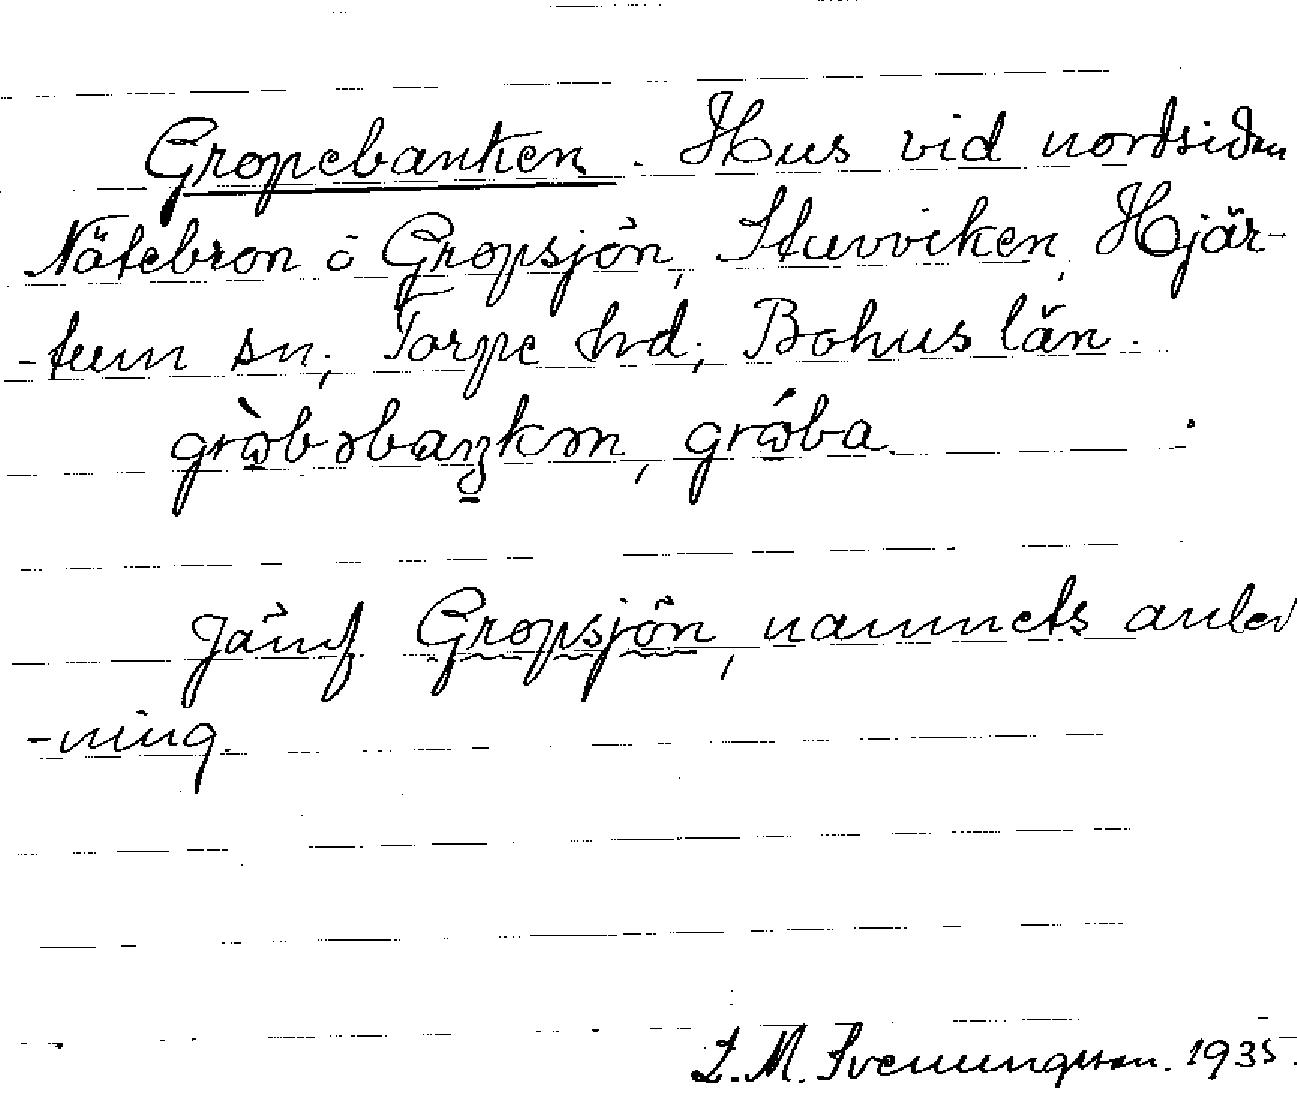 Gropebanken. Hus vid nordsidan
Nätebron o Gropsjön, Stuvviken, Hjär-
-tum sn; Torpe hd; Bohus län.
grò̱bəbaŋkən, gró̱ba.
Jämf Gropsjön, namnets anled
-ning.
L. M. Svenungsson. 1935.